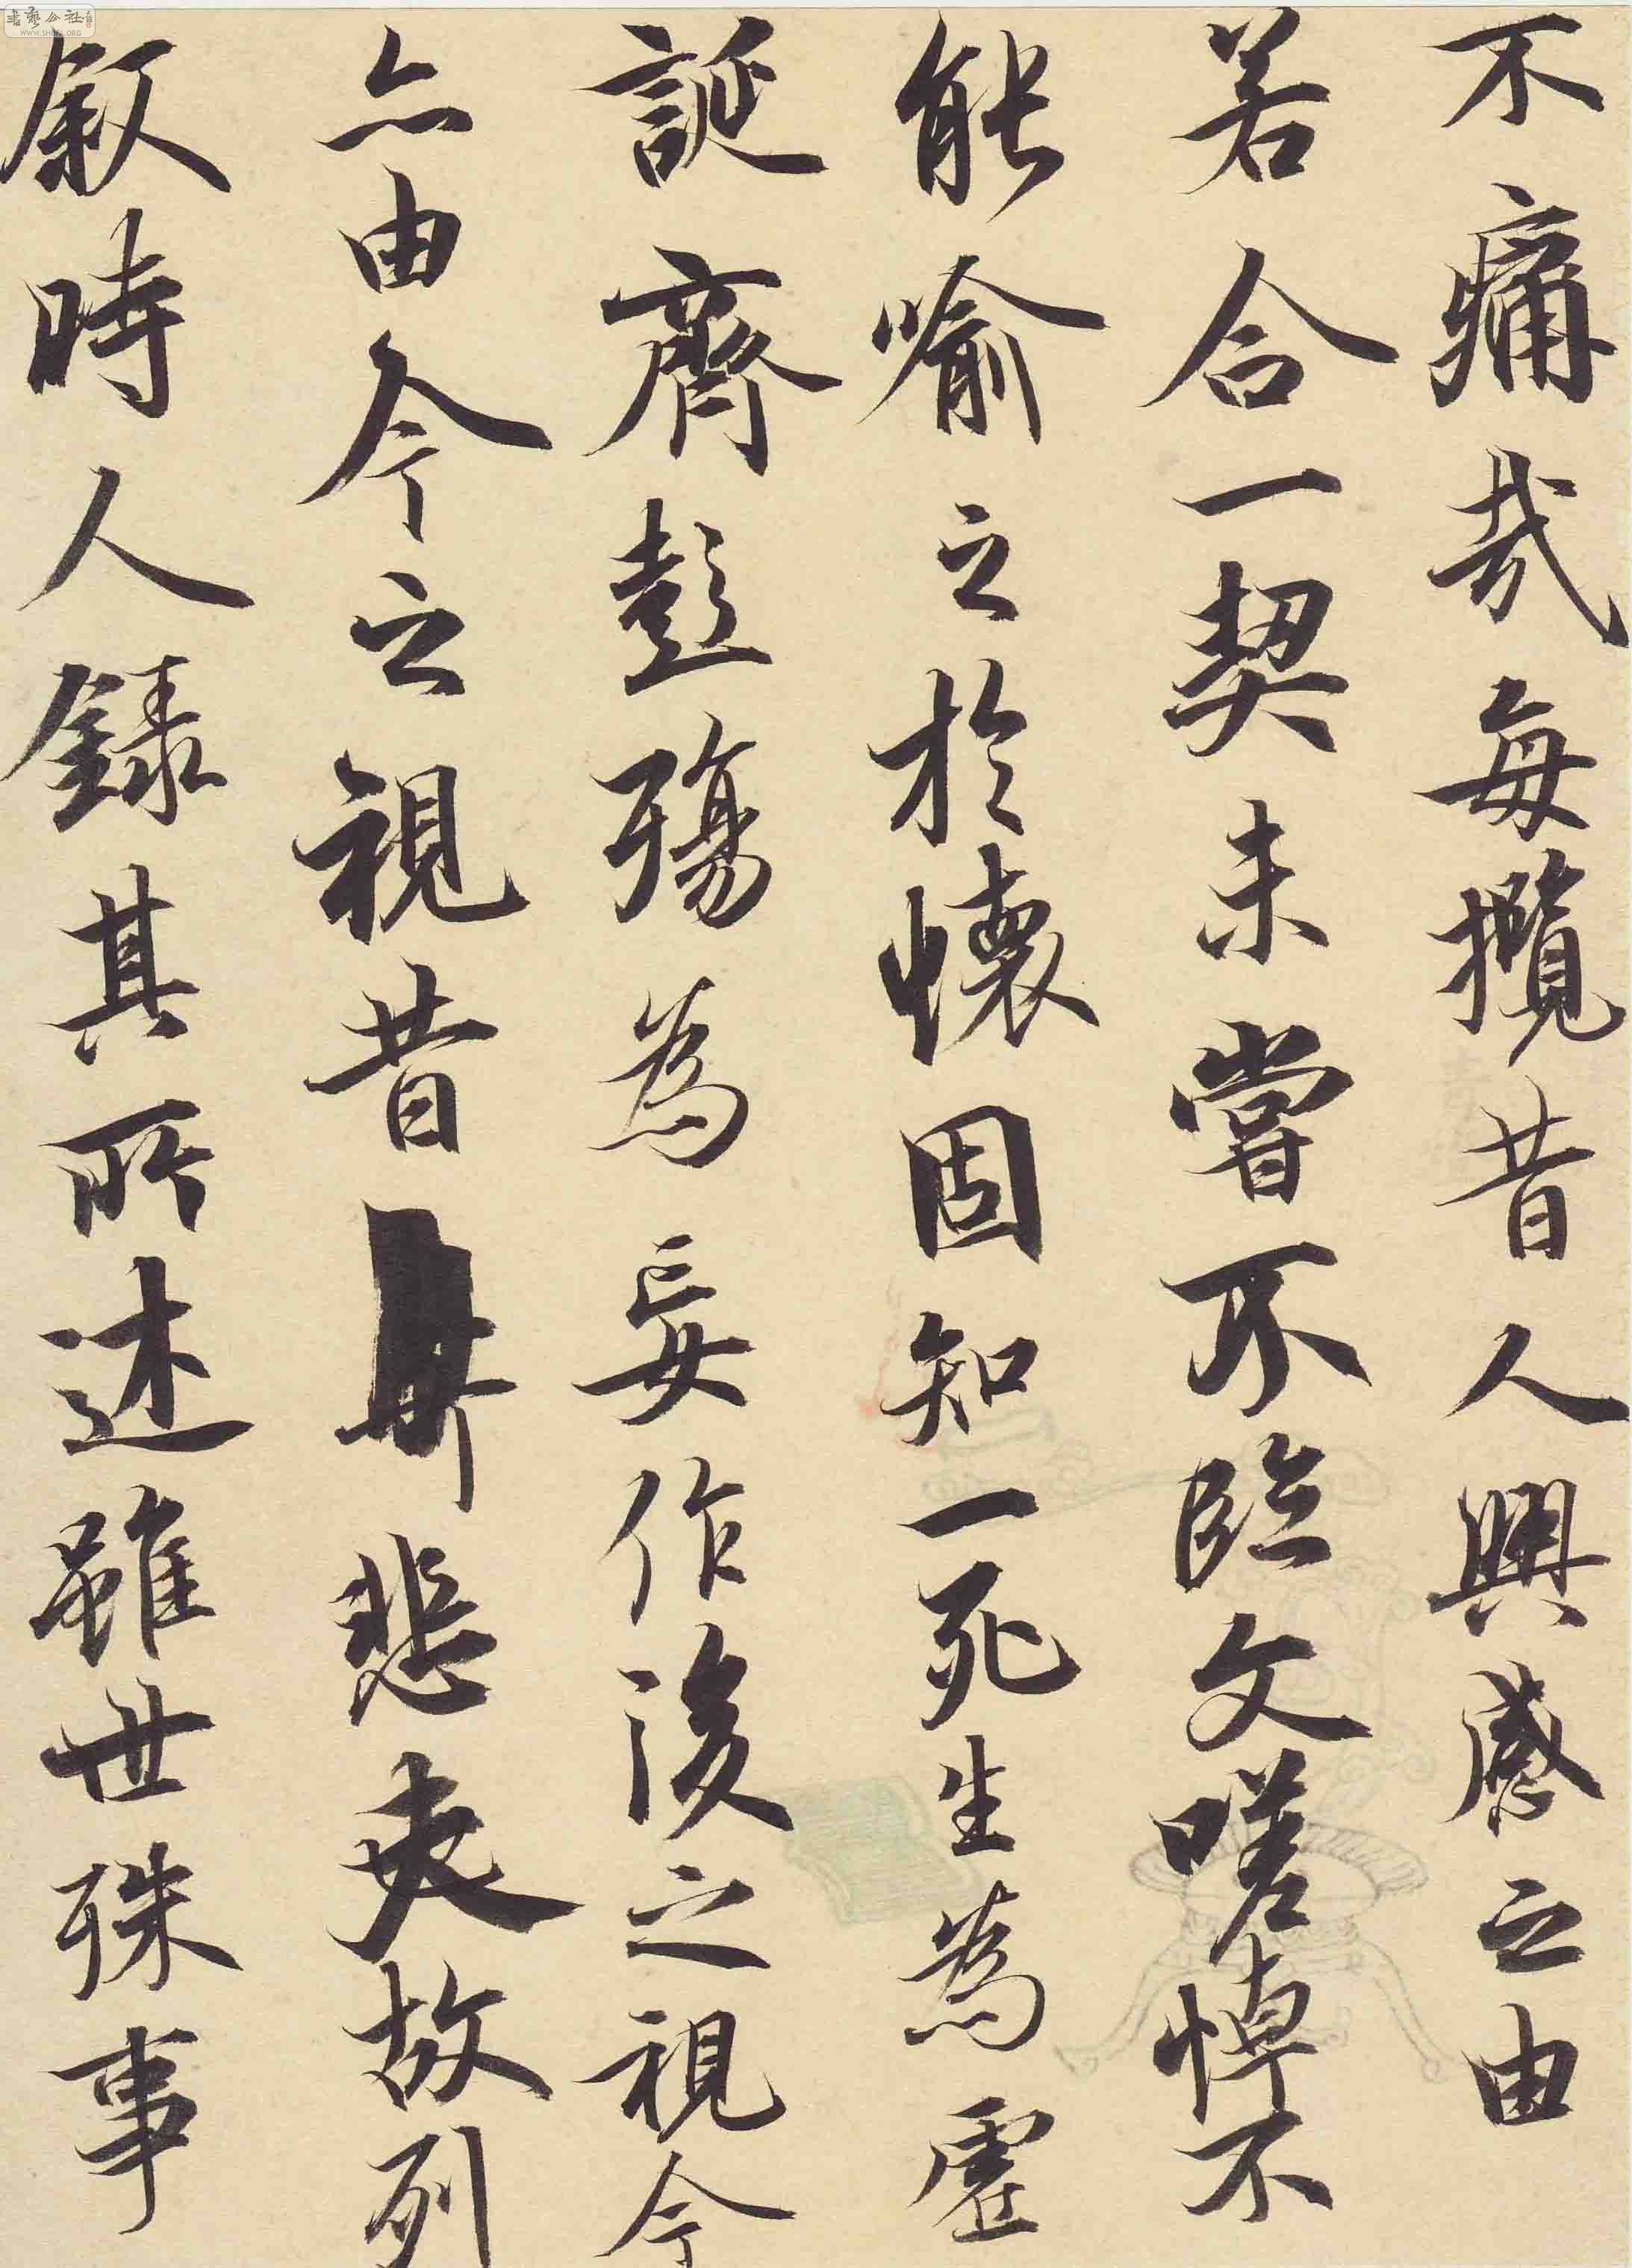 不痛哉每攬昔人興感之由
若合一契未嘗不臨文嗟悼不
能喻之於懷固知一死生為虛
誕齊彭殤為妄作後之視今
亦由今之視昔 悲夫故列
敘時人錄其所述雖世殊事
WWW.SHUFA.ORG